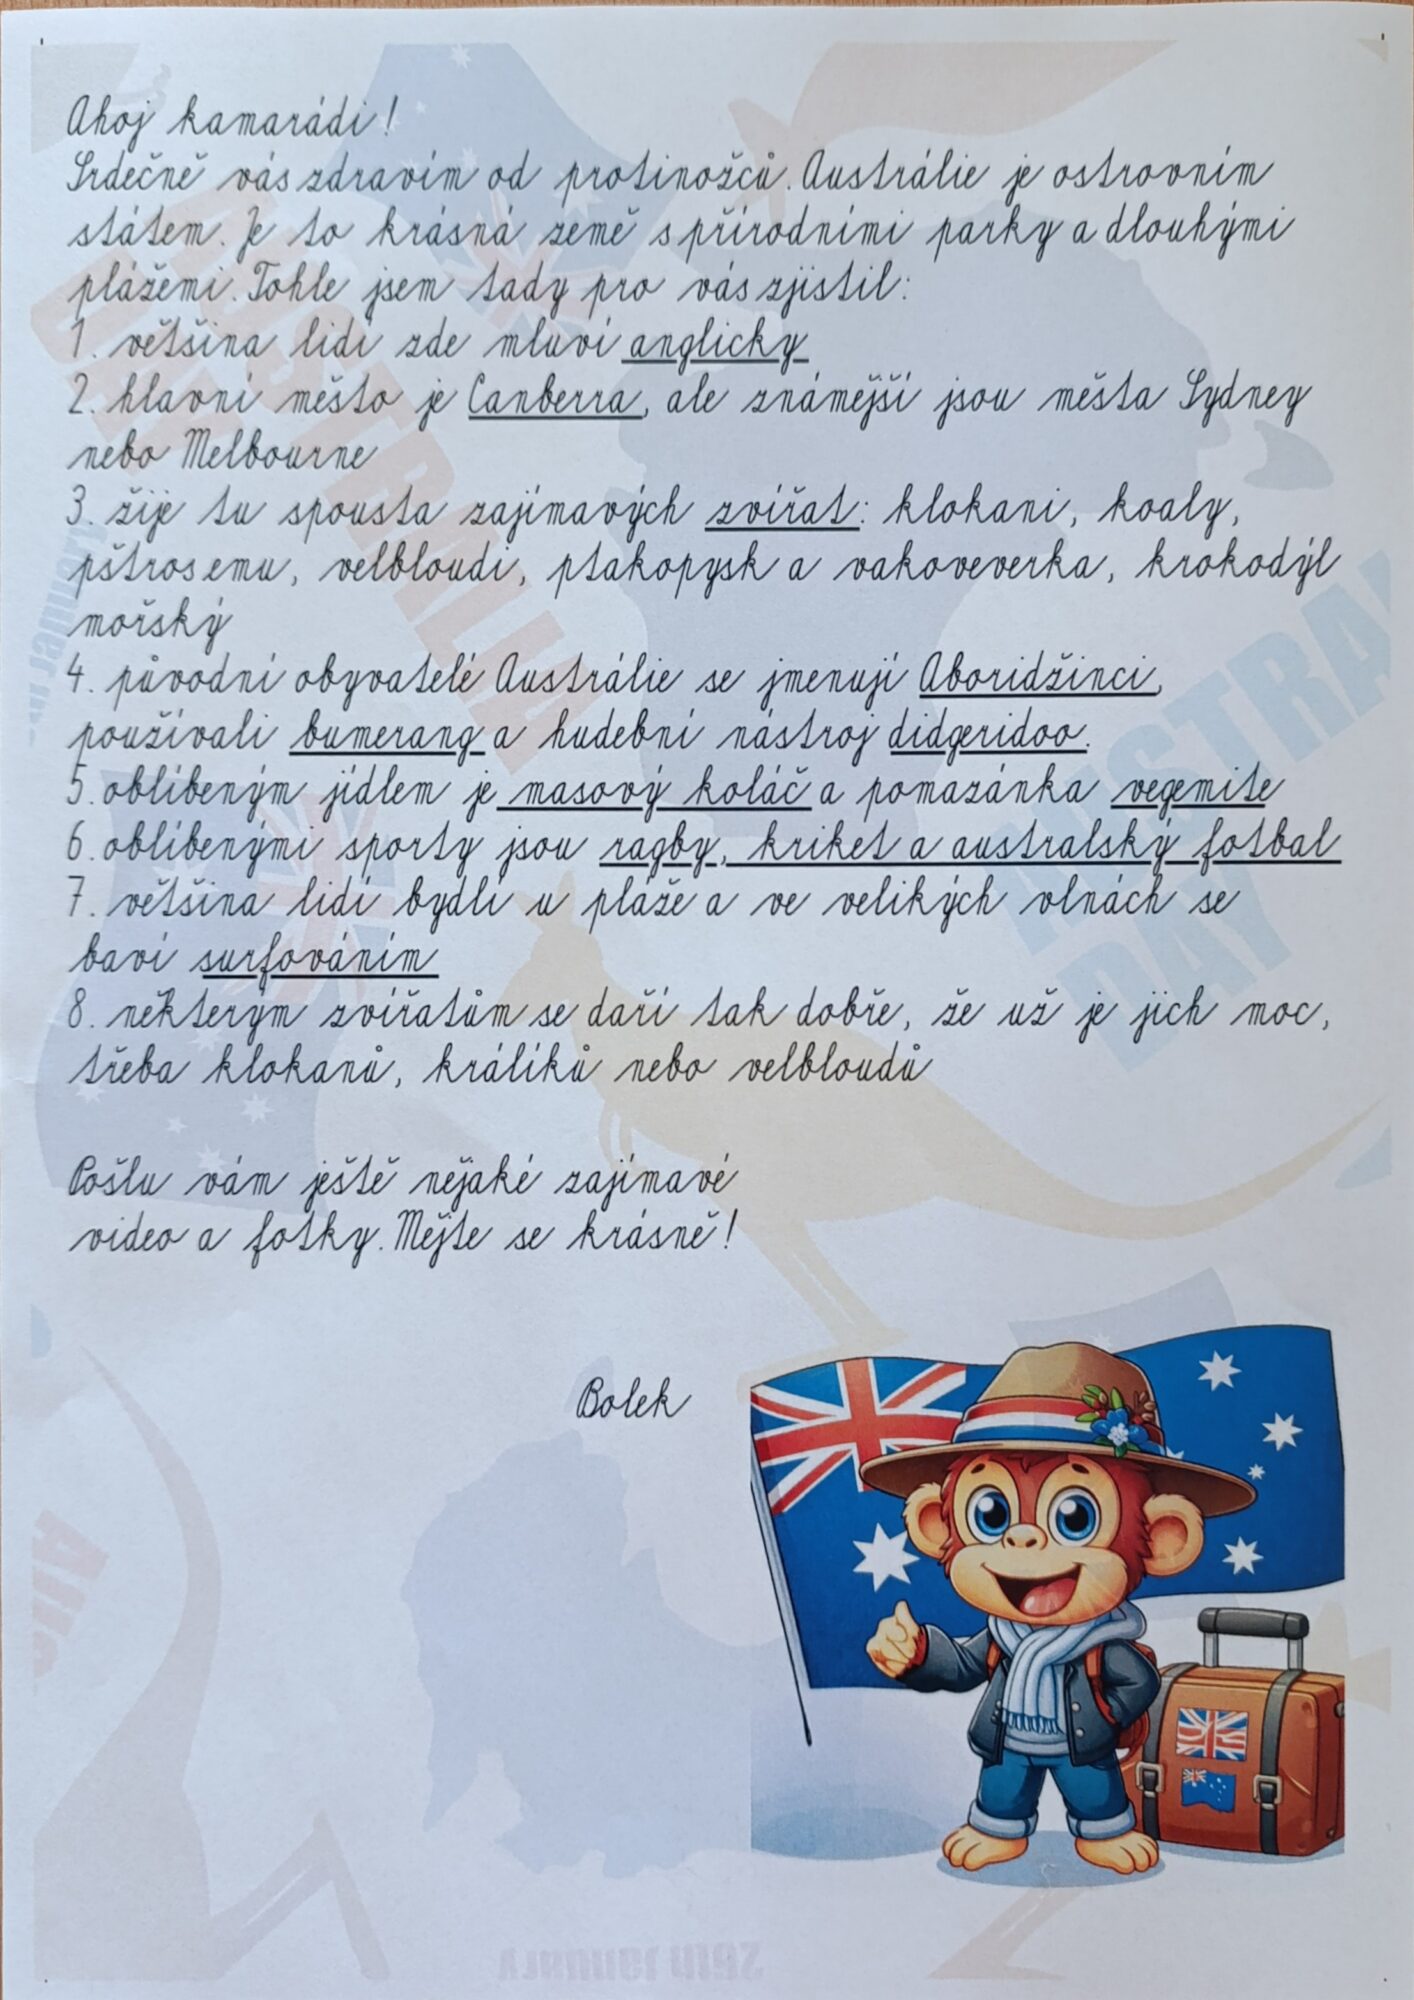 Ahoj kamarádi!
Srdečně vás zdravím od protinožců. Austrálie je ostrovním
státem. Je to krásná země s přírodními parky a dlouhými
plážemi. Tohle jsem tady pro vás zjistil:
1. většina lidí zde mluví anglicky
2. hlavní město je Canberra, ale známější jsou města Sydney
nebo Melbourne
3. žije tu spousta zajímavých zvířat: klokani, koaly,
pštros emu, velbloudi, ptakopysk a vakoveverka, krokodýl
mořský
4. původní obyvatelé Austrálie se jmenují Aboridžinci,
používali bumerang a hudební nástroj didgeridoo.
5. oblíbeným jídlem je masový koláč a pomazánka vegemite
6. oblíbenými sporty jsou ragby, kriket a australský fotbal
7. většina lidí bydlí u pláže a ve velikých vlnách se
baví surfováním
8. některým zvířatům se daří tak dobře, že už je jich moc,
třeba klokanů, králíků nebo velbloudů
Pošlu vám ještě nějaké zajímavé
video a fotky. Mějte se krásně!
Bolek
AUSTRALIA
DAY
26th January